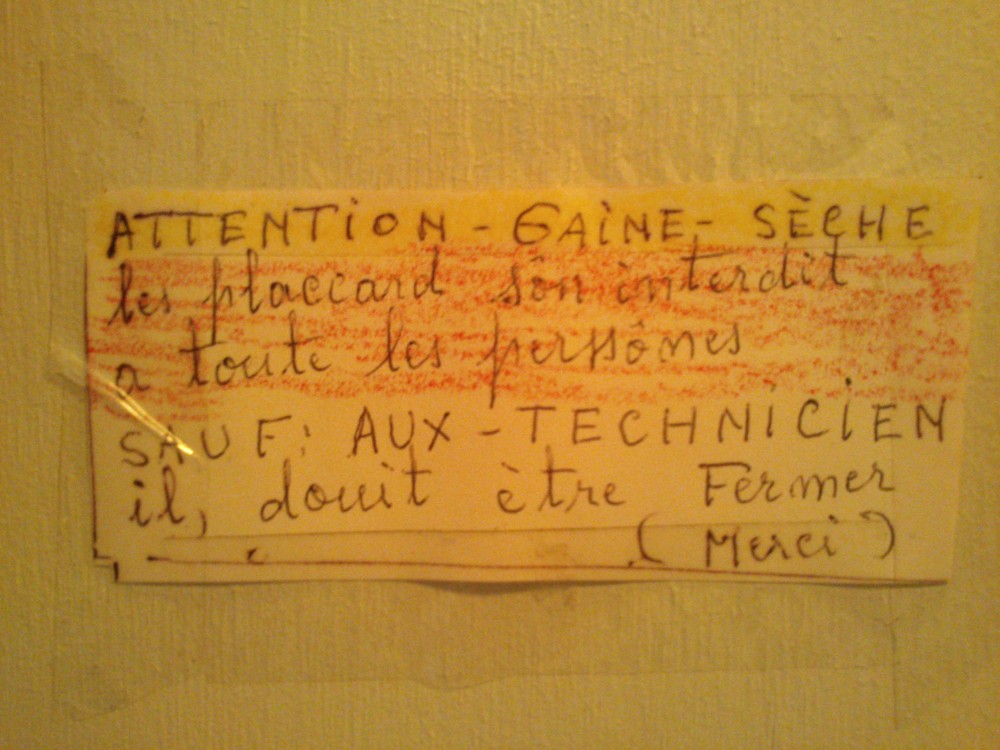 ATTENTiON - GAiNE - SÈCHE
les placcard sôn interdit
a toute les perssônnes
SAUF: AUX - TECHNiCiEN
il, douit ètre Fermer
(Merci)